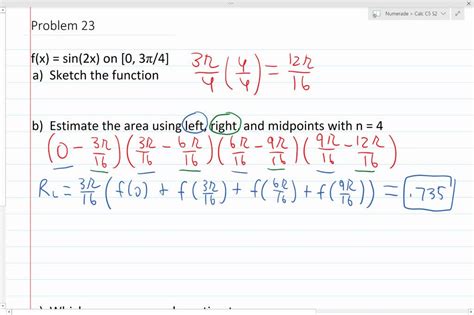 Numerade > Calc C5 S2
Problem 23
f(x) = sin(2x) on [0, 3π/4] 3π/4 (4/4) = 12π/16
a) Sketch the function
b) Estimate the area using left, right, and midpoints with n = 4
(0 - 3π/16)(3π/16 - 6π/16)(6π/16 - 9π/16)(9π/16 - 12π/16)
R_L = 3π/16 (f(0) + f(3π/16) + f(6π/16) + f(9π/16)) = .735